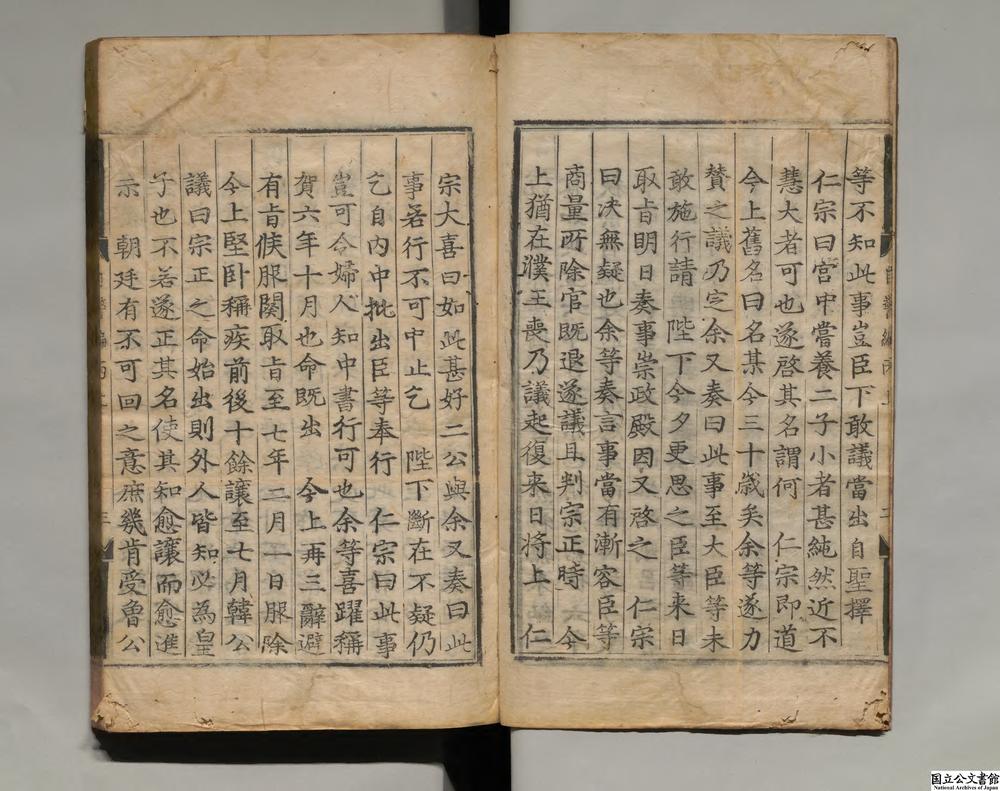 等不知此事豈臣下敢議當出自聖擇
仁宗曰宫中嘗養二子小者甚純然近不
慧大者可也遂啓其名謂何 仁宗即道
今上舊名曰名某今三十歲矣余等遂力
賛之議乃㝎余又奏曰此事至大臣等未
敢施行請 陛下今夕更思之臣等来日
取㫖明日奏事崇政殿因又啓之 仁宗
曰决無疑也余等奏言事當有漸容臣等
商量所除官既退遂議且判宗正時 今
上猶在濮王喪乃議起復来日将上 仁
宗大喜曰如此甚好二公與余又奏曰此
事若行不可中止乞 陛下斷在不疑仍
乞自内中批出臣等奉行 仁宗曰此事
豈可令婦人知中書行可也余等喜躍稱
賀六年十月也命既出 今上再三辭避
有㫖候服闋取㫖至七年二月一日服除
今上堅卧稱疾前後十餘讓至七月韓公
議曰宗正之命始出則外人皆知必為皇
子也不若遂正其名使其知愈讓而愈進
示 朝廷有不可回之意庶幾肯受魯公
国立公文書館
National Archives of Japan